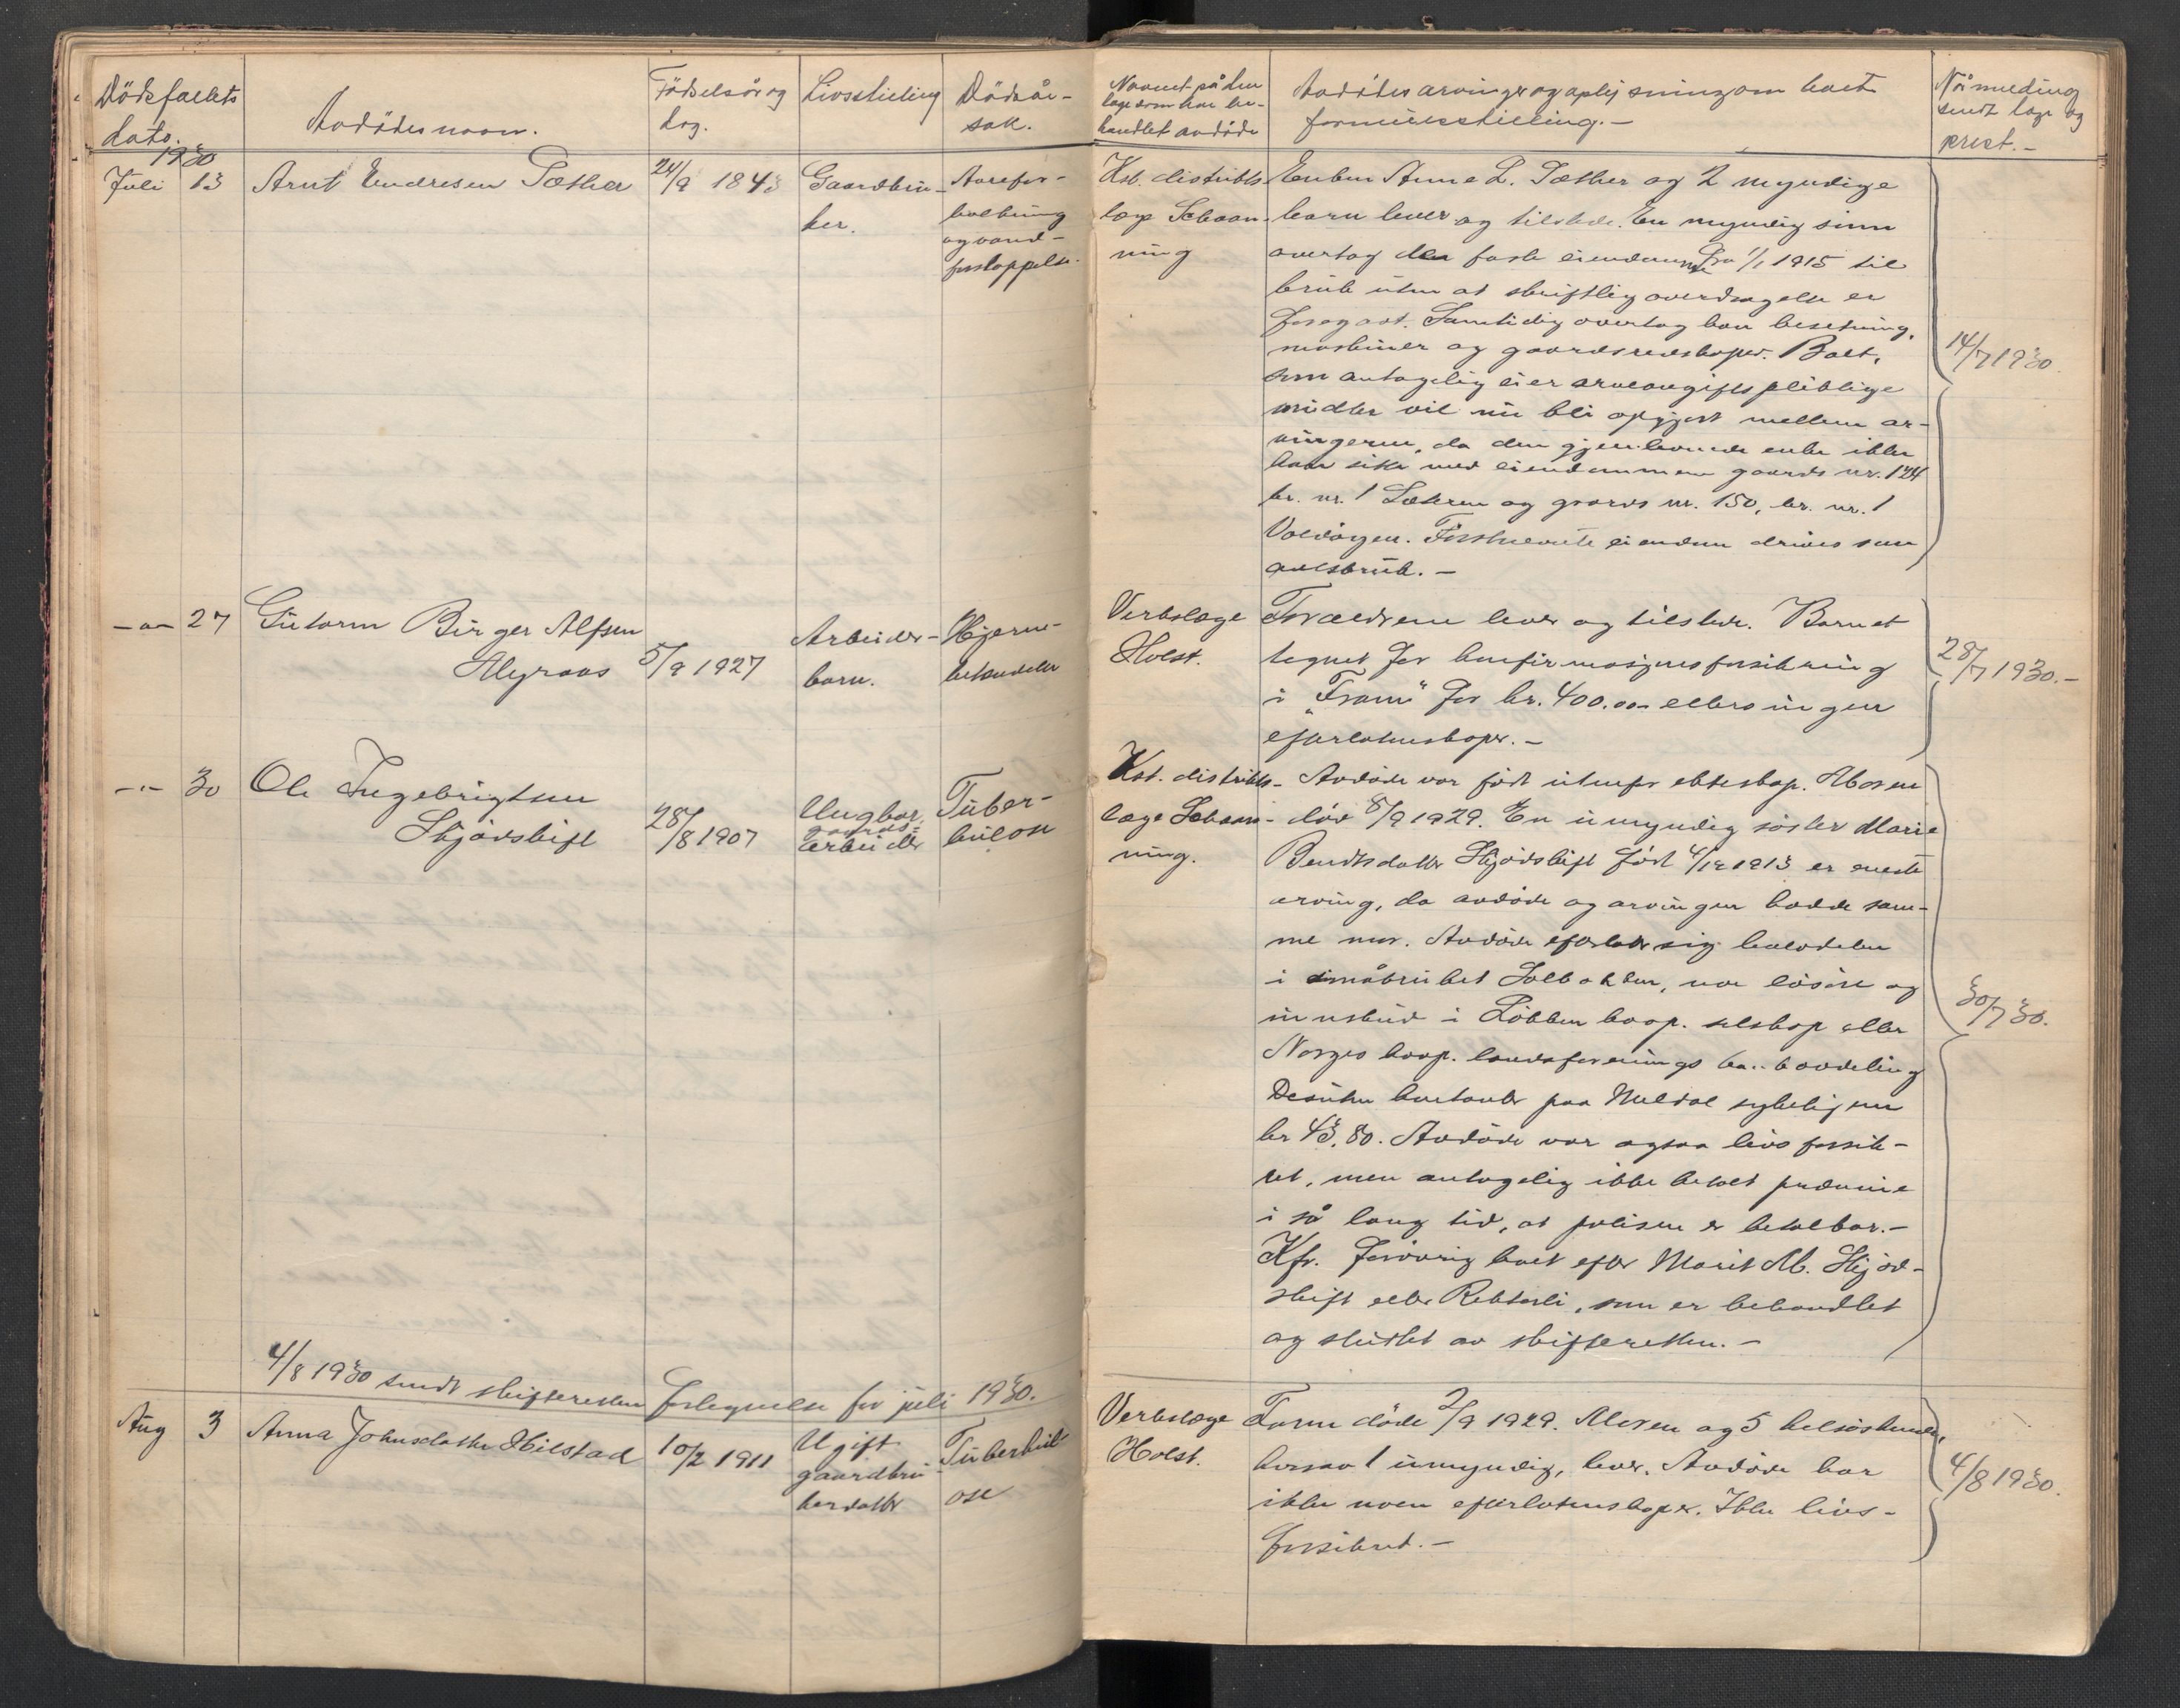 Dödsfaldets
dato.
Avdödes navn.
Födselsår og
dag.
Livsstilling
Dödsår-
sak.
Navnet på den
læge som har be-
handlet avdöde
Avdödes arvinger og oplysning om boets
formuesstilling.-
Når melding
sendt læge og
prest.-
1930
Juli 13
Arnt Endresen Sæther
24/9 1843
Gaardbru-
ker.
Aarefor-
kalkning
og vand-
forstoppelse.
Kst. distrikts
læge Schaan-
ning
Enken Anne L. Sæther og 2 myndige
barn lever og tilstede. En myndig sönn
overtog den faste eiendom fra 1/1 1915 til
bruk uten at skriftlig overdragelse er
foregaat. Samtidig overtog han besetning,
maskiner og gaardsredskaper. Boet,
som antagelig eier arveavgiftspliktige
midler vil nu bli opgjort mellem ar-
vingerne, da den gjenlevende enke ikke
kan sitte med eiendommene gaards nr. 124
br. nr. 1 Sæteren og gaards nr. 150, br. nr. 1
Voldöyen. Förstnevnte eiendom drives som
avlsbruk.-
14/7 1930.
-"- 27
Gutorm Birger Alfsen
Myraas
5/9 1927
Arbeider-
barn.
Hjerne-
betændelse
Verkslæge
Holst.
Forældrene lever og tilstede. Barnet
tegnet for konfirmasjonsforsikring
i "Fram" for kr. 400.00 ellers ingen
efterlatenskaper.-
28/7 1930.-
-"- 30
Ole Ingebrigtsen
Skjödskift
28/8 1907
Ungkar,
gaards-
arbeider
Tuber-
kulose
Kst. distrikts-
læge Schaan-
ning.
Avdöde var födt utenfor ekteskap. Moren
död 8/9 1929. En umyndig söster Marie
Bendtsdatter Skjödskift född 4/12 1913 er eneste
arving, da avdöde og arvingen hadde sam-
me mor. Avdöde efterlater sig halvdelen
i småbruket Solbakken, noe lösöre og
innskud i Lökken koop. selskap eller
Norges koop. landsforenings bankavdeling
Desuten kontanter paa Meldal sykehjem
kr 43,80. Avdöde var ogsaa livsforsik-
ret, men antagelig ikke betalt præmie
i så lang tid, at polisen er betalbar.-
Kfr. forövrig boet efter Marit M. Skjöd-
skift eller Rebtsli, som er behandlet
og sluttet av skifteretten.-
30/7 30.
4/8 1930 sendt skifteretten fortegnelse for juli 1930.
Aug 3
Anna Johnsdatter Hilstad
10/2 1911
Ugift
gaardbru-
kerdatter
Tuberkul-
ose
Verkslæge
Holst.
Faren döde 2/9 1929. Moren og 5 helsösken,
hvorav 1 umyndig, lever. Avdöde har
ikke noen efterlatenskaper. Ikke livs-
forsikret.-
4/8 1930.